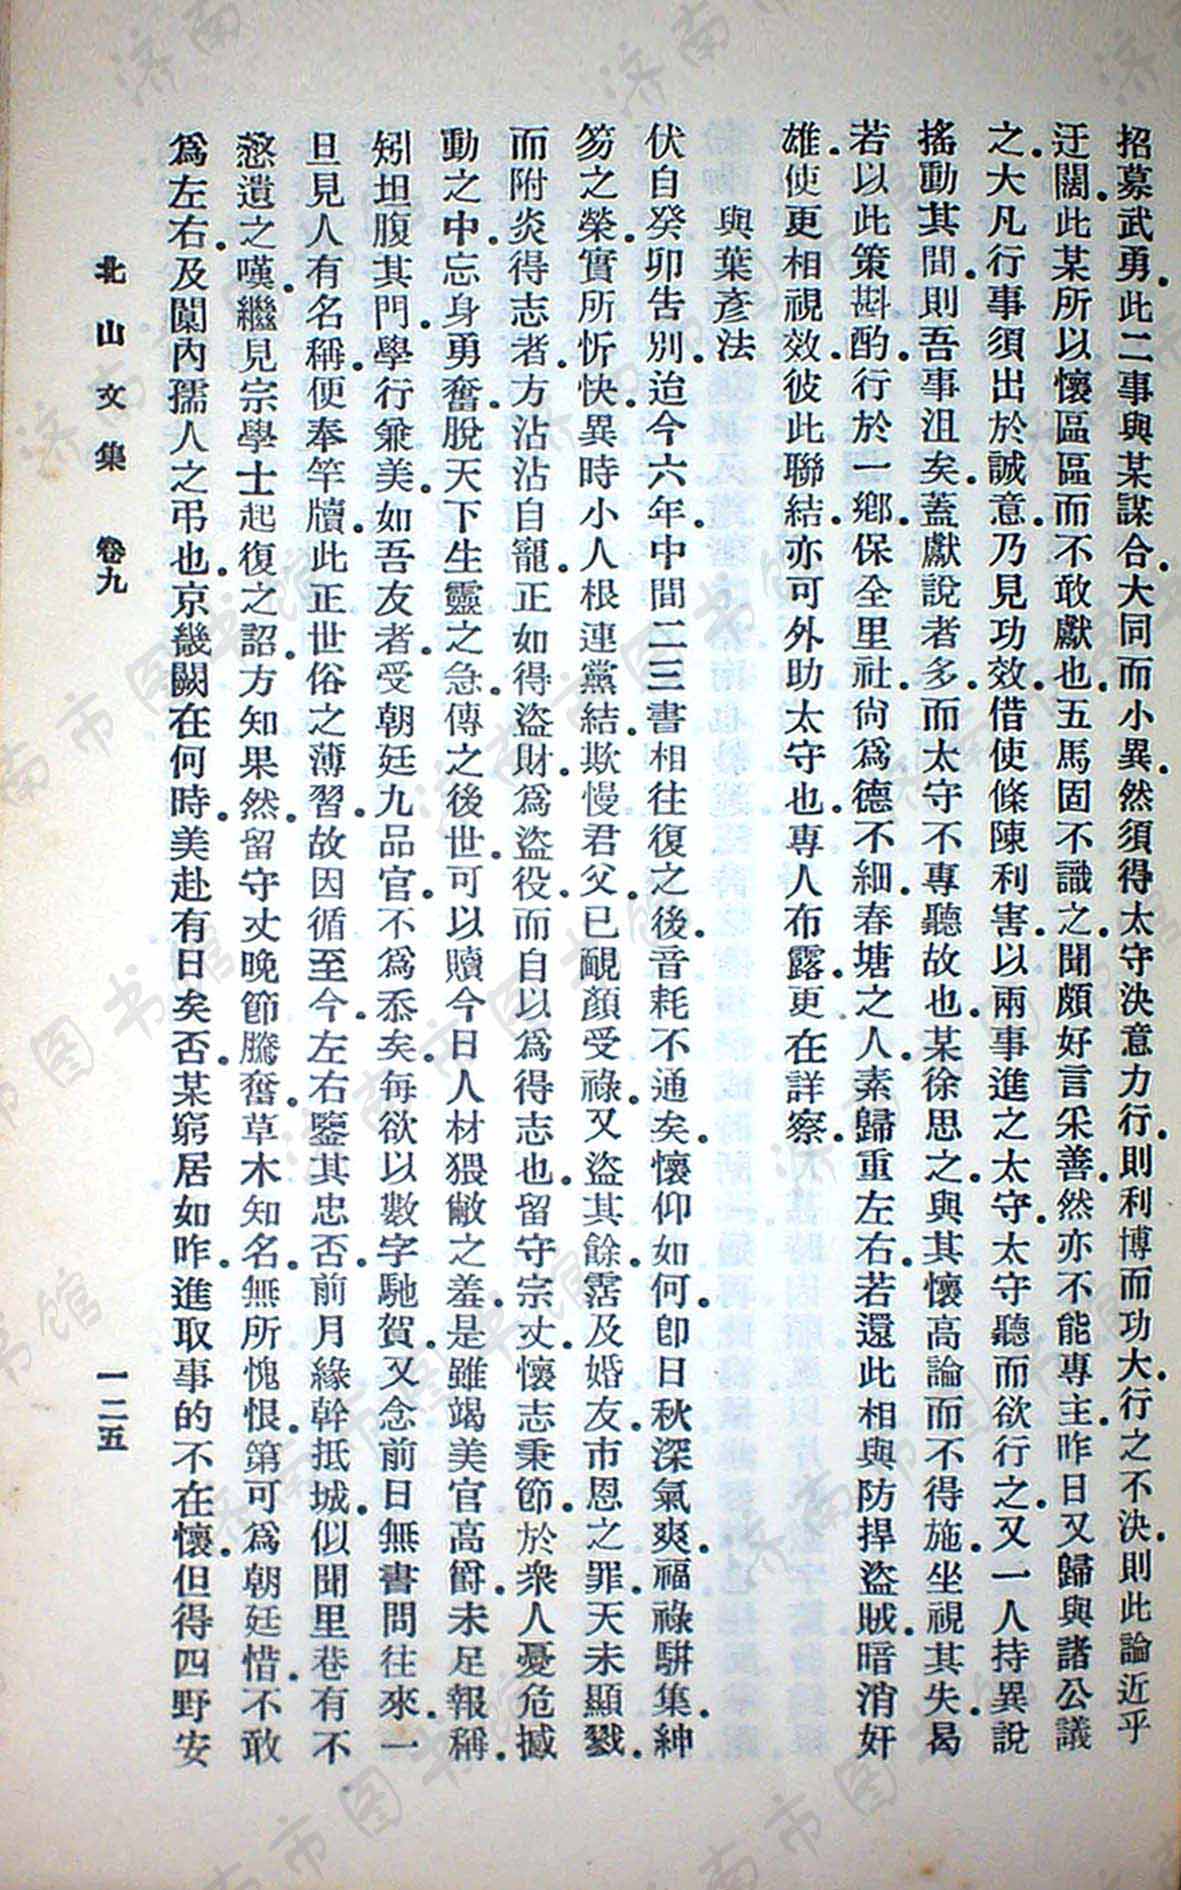 招募武勇。此二事與某謀合。大同而小異。然須得太守決意力行。則利博而功大。行之不決。則此論近乎
迂闊。此某所以懷區區而不敢獻也。五馬固不識之。聞頗好言采善。然亦不能專主。昨日又歸與諸公議
之。大凡行事須出於誠意。乃見功效。借使條陳利害。以兩事進之太守。太守聽而欲行之。又一人持異說
搖動其間。則吾事沮矣。蓋獻說者多。而太守不專聽故也。某徐思之。與其懷高論而不得施。坐視其失。曷
若以此策斟酌。行於一鄉。保全里社。尙爲德不細。春塘之人。素歸重左右。若還此相與防捍盜賊。暗消奸
雄。使更相視效。彼此聯結。亦可外助太守也。專人布露。更在詳察。
與葉彥法
伏自癸卯告別。迨今六年。中間二三書相往復之後。音耗不通矣。懷仰如何。卽日秋深氣爽。福祿駢集。紳
笏之榮。實所忻快。異時小人根連黨結。欺慢君父。已覥顏受祿。又盜其餘。霑及婚友。市恩之罪。天未顯戮。
而附炎得志者。方沾沾自寵。正如得盜財。爲盜役。而自以爲得志也。留守宗丈。懷志秉節。於衆人憂危撼
動之中。忘身勇奮。脫天下生靈之急。傳之後世。可以贖今日人材猥敝之羞。是雖竭美官高爵。未足報稱。
矧坦腹其門。學行兼美。如吾友者。受朝廷九品官。不爲忝矣。每欲以數字馳賀。又念前日無書問往來。一
旦見人有名稱。便奉竿牘。此正世俗之薄習。故因循至今。左右鑒其忠否。前月緣幹抵城。似聞里巷有不
憖遺之嘆。繼見宗學士起復之詔。方知果然。留守丈晚節騰奮。草木知名。無所愧恨。第可爲朝廷惜。不敢
爲左右。及閫內孺人之弔也。京畿闕在何時。美赴有日矣否。某窮居如昨。進取事的不在懷。但得四野安
北山文集 卷九
一二五
济南市图书馆